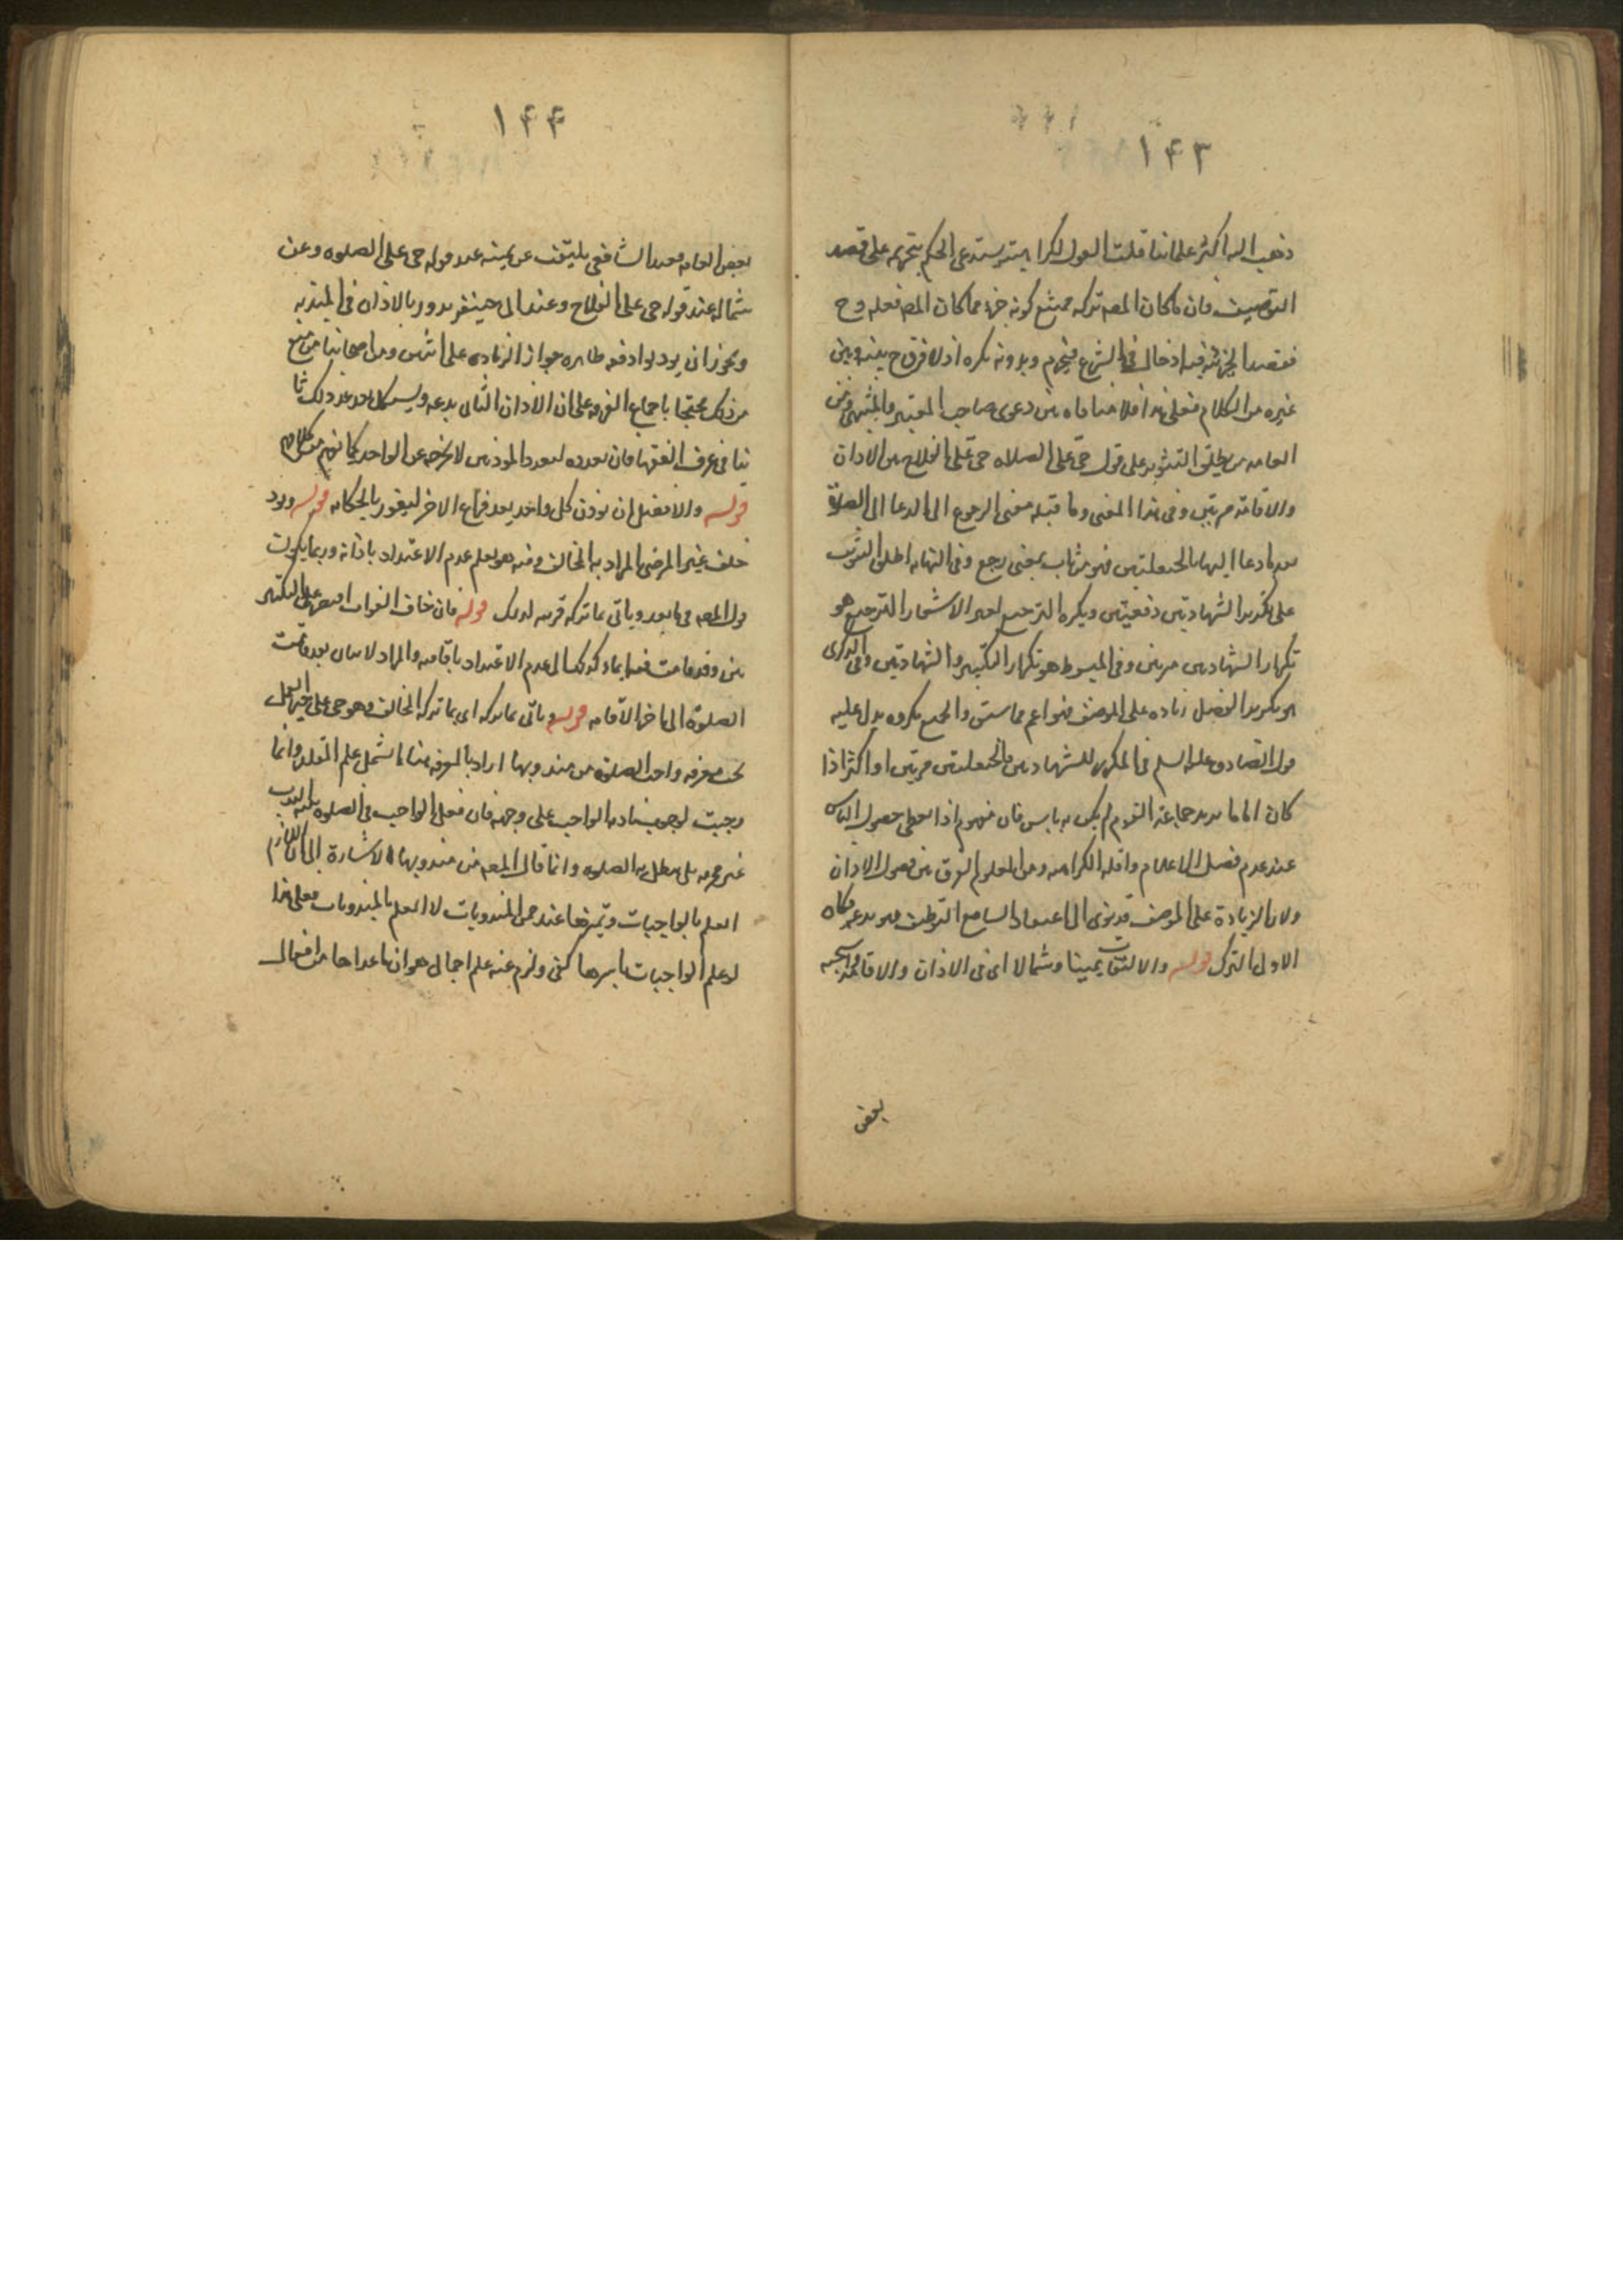 ١۴٣
ذهب اليه اكثر علمائنا قلت القول بكراهيته يستدعى الحكم بتحريمه على قصد
التوظيف فان ما كان المصـ تركه ممتنع كونه جزءا مما كان المصـ فعله وح
فقصد الجزئية فيه ادخال فى الشرع فيحرم وبدونه يكره اذ لا فرق ح بينه وبين
غيره من الكلام فعلى هذا فلا منافاه بين دعوى صاحب المعتبر والمنتهى ومن
العامه من يطلق التثويب على قول حى على الصلاه حى على الفلاح بين الاذان
والاقامة مرتين وفى هذا المعنى وما قبله معنى الرجوع الى الدعا الى الصلوة
بعد ما دعا اليها بالحيعلتين فهو من ثاب بمعنى رجع وفى النهايه اطلق التثويب
على تكرير الشهادتين دفعتين ويكره الترجيع لغير الاشعار الترجيع هو
تكرار الشهادتين مرتين وفى المبسوط هو تكرار التكبير والشهادتين وفى الذكرى
هو تكرير الفصل زياده على الموظف فهو اعم مما سبق والجميع مكروه يدل عليه
قول الصادق عليه السلم فى المكرر للشهادتين والحيعلتين مرتين او اكثر اذا
كان اماما يريد جماعة القوم لم يكن به باس فان مفهوم اذا يعطى حصول الباس
عند عدم فصل الاعلام واقله الكراهيه ومن المعلوم الفرق بين فصول الاذان
ولان الزيادة على الموظف قد يؤدى الى اعتقاد السامع التوظيف فهو بدعه فكان
الاولى الترك قوله والالتفات يمينا وشمالا اى فى الاذان والاقامة واستحبه
بعض
١۴۴
بعض العامه فعند الشافعى يلتفت عن يمينه عند قوله حى على الصلوه وعن
شماله عند قوله حى على الفلاح وعند ابى حنيفه يدور بالاذان فى المئذنه
ويجوز ان يؤذنوا دفعه ظاهره جواز الزياده على اثنين ومن اصحابنا من منع
من ذلك محتجا باجماع الفرقه على ان الاذان الثالث بدعه ويشكل بعد عد ذلك ثا
نيا فى عرف الفقها فان تعدده لتعدد المؤذنين لا يخرجه عن الواحد كما يفهم من كلامهم
قوله والافضل ان يؤذن كل واحد بعد فراغ الاخر ليفوز بالحكايه قوله ويؤذن
خلف غير المرضى المراد به المخالف ومنه يعلم عدم الاعتداد باذانه وربما يكون
قول المصـ فيما بعد وياتى بما تركه قرينه لذلك قوله فان خاف الفوات اقتصر على التكبير
تين وقد قامت فيه ايماء كذلك الى عدم الاعتداد باقامته والمراد الاتيان بعد قامت
الصلوة الى اخر الاقامه قوله وياتى بما تركه اى بما تركه المخالف وهو حى على خير العمل
يجب معرفه واجب الصلوة من مندوبها اراد بالمعرفه هنا ما يشمل علم المقلد وانما
وجبت لوجوب نيه الواجب على وجهه فان فعل الواجب فى الصلوه بنيه الندب
غير مجزيه بل يبطل به الصلوه وانما قال المصـ من مندوبها الاشارة الى ان اللازم
العلم بالواجبات وتميزها عند عن المندوبات لا العلم بالمندوبات فعلى هذا
لو علم الواجبات باسرها كفى ولزم عنه علم اجمالى هو ان ما عداها من افعال